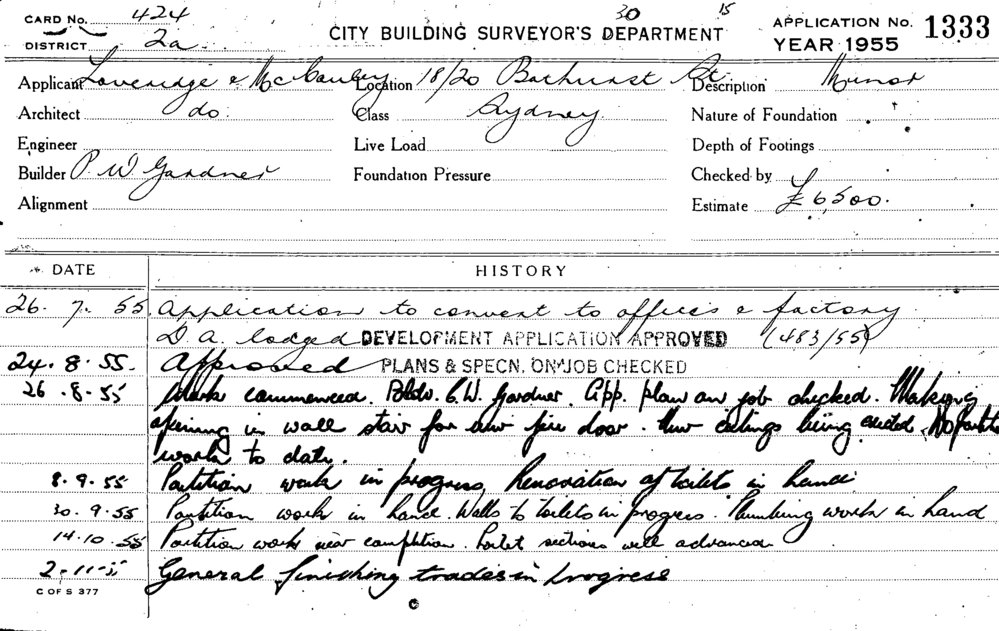 30 15
CARD No. 424 CITY BUILDING SURVEYOR'S DEPARTMENT APPLICATION No. 1333
DISTRICT 2a YEAR 1955
Applicant Loveridge & McCauley Location 18/20 Bathurst St Description Minor
Architect do. Class Sydney Nature of Foundation
Engineer Live Load Depth of Footings
Builder P. W. Gardner Foundation Pressure Checked by
Alignment Estimate £6,500.
DATE HISTORY
26. 7. 55. Application to convert to offices & factory.
D.A. lodged DEVELOPMENT APPLICATION APPROVED (483/55)
24. 8. 55. Approved PLANS & SPECN. ON JOB CHECKED
26. 8. 55 Work commenced. Bldr. W. Gardner. App. plan on job checked. Making
opening in wall stair for new fire door. New ceilings being erected. No partition
work to date.
8. 9. 55 Partition work in progress, Renovation of toilets in hand
30. 9. 55 Partition work in hand. Walls to toilets in progress. Plumbing work in hand
14. 10. 55 Partition work near completion. Toilet sections well advanced
2-11-55 General finishing trades in progress
C OF S 377